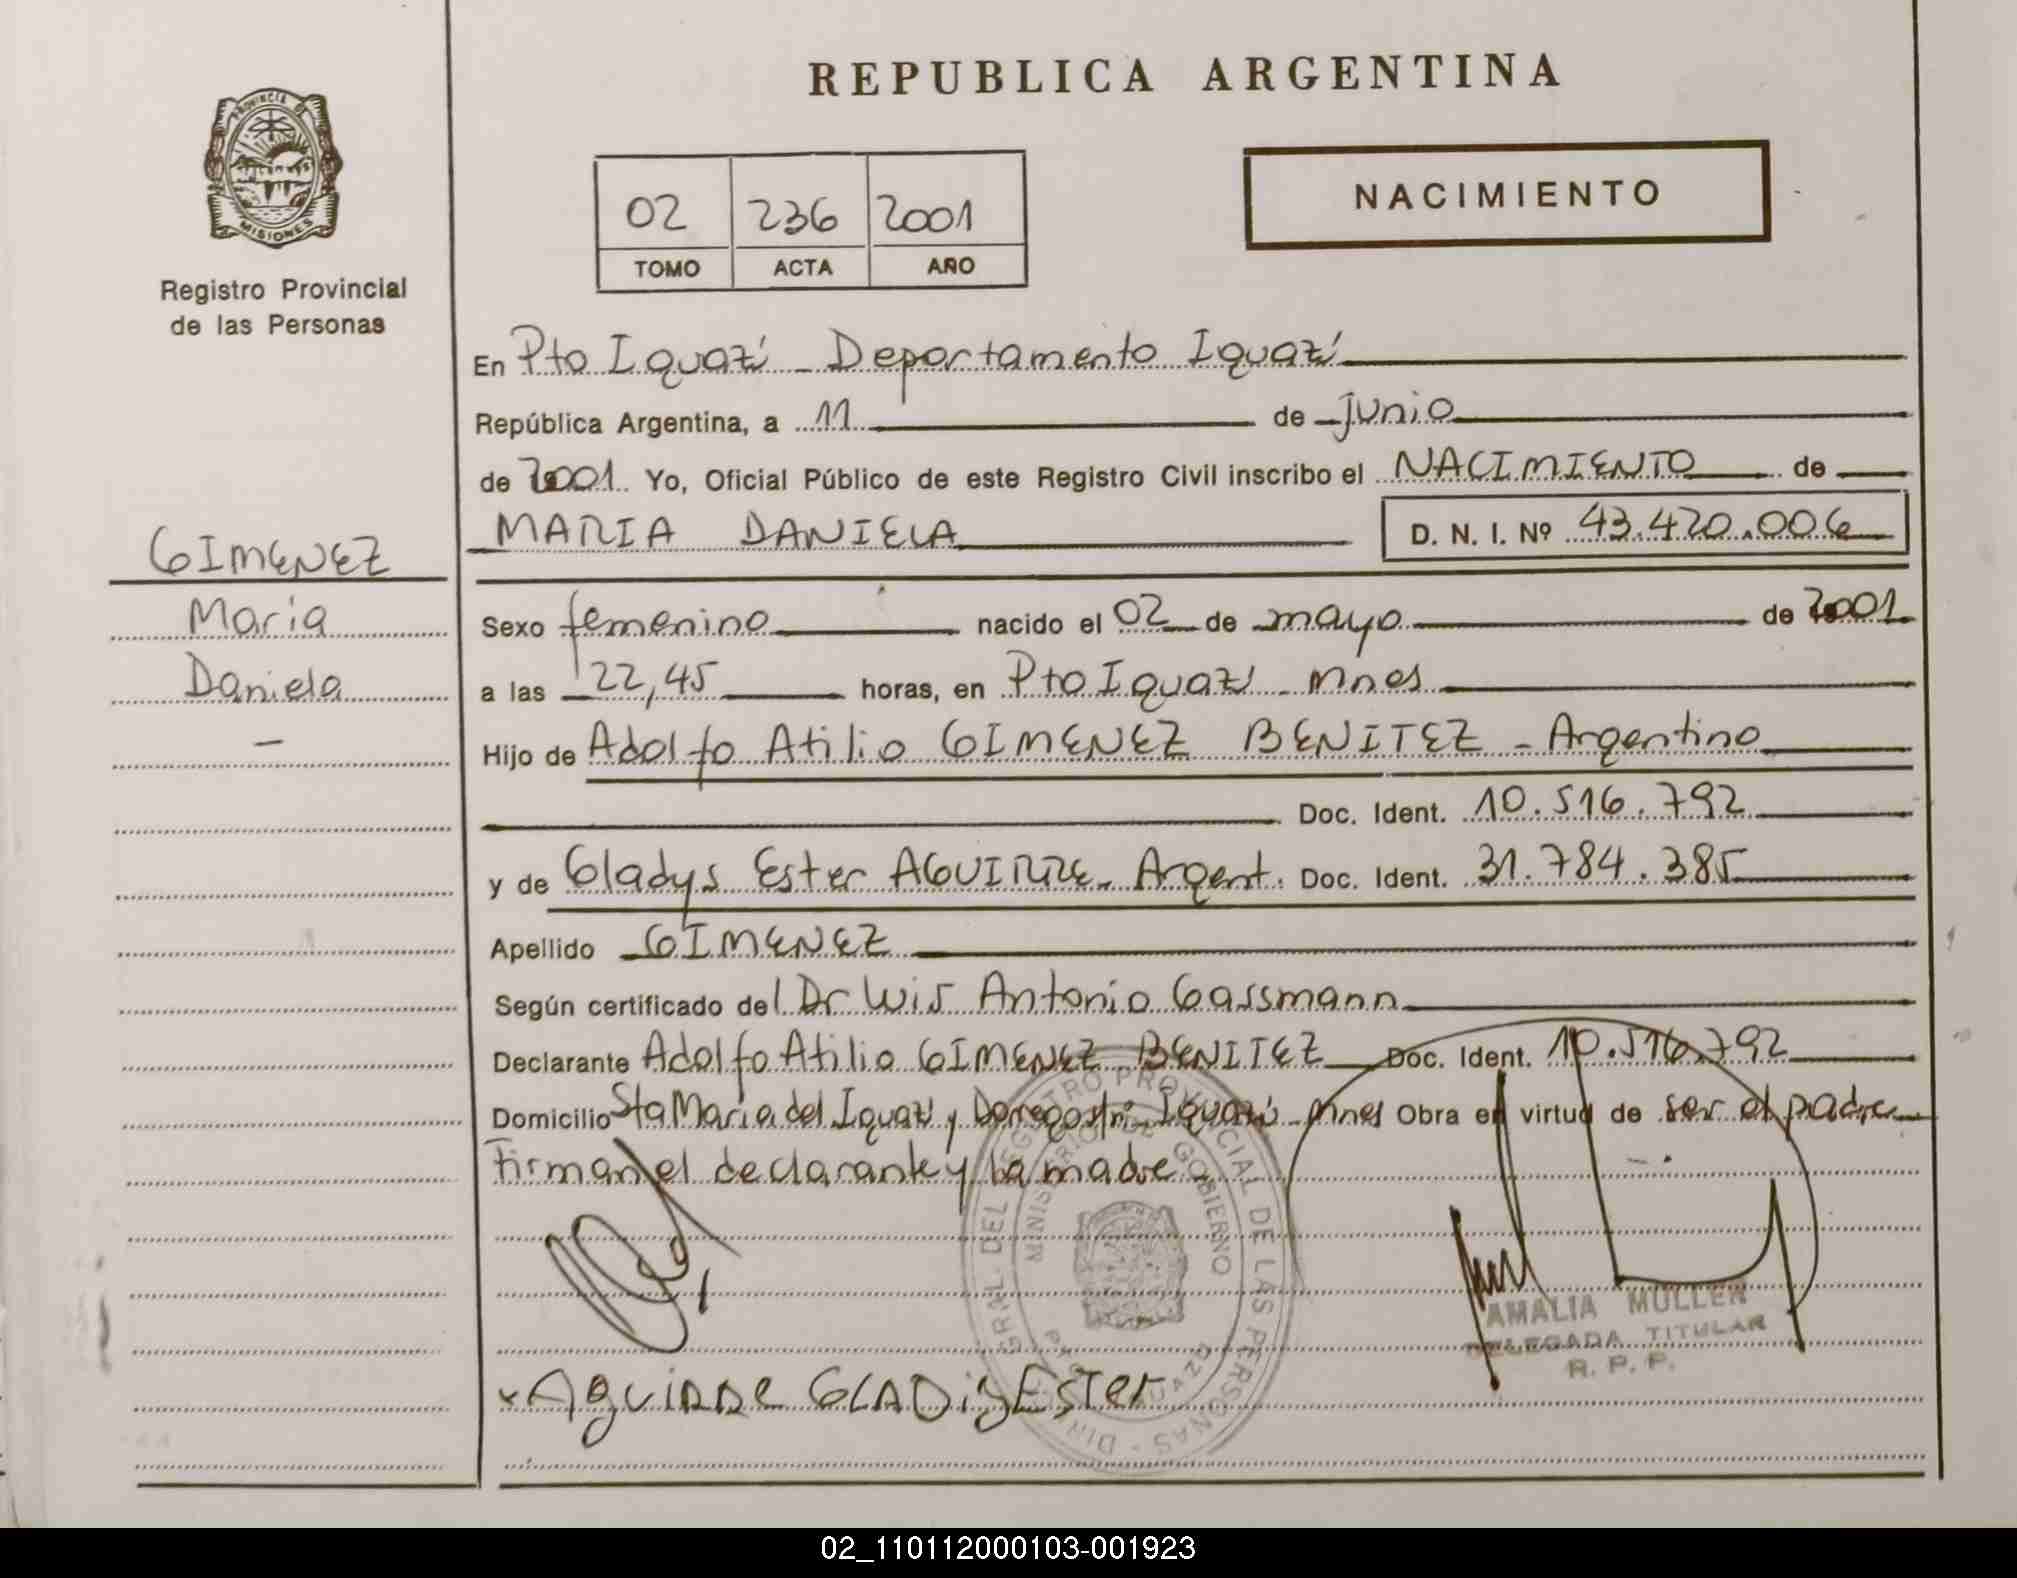 REPUBLICA ARGENTINA
PROVINCIA DE MISIONES
Registro Provincial
de las Personas
02 236 2001
TOMO ACTA AÑO
NACIMIENTO
En Pto Iguazú - Departamento Iguazú
República Argentina, a 11 de junio
de 2001 Yo, Oficial Público de este Registro Civil inscribo el NACIMIENTO de
MARIA DANIELA D. N. I. Nº 43.420.006
GIMENEZ
Maria
Daniela
-
Sexo femenino nacido el 02 de mayo de 2001
a las 22,45 horas, en Pto Iguazú - Mnes
Hijo de Adolfo Atilio GIMENEZ BENITEZ - Argentino
Doc. Ident. 10.516.792
y de Gladys Ester AGUIRRE - Argent. Doc. Ident. 31.784.385
Apellido GIMENEZ
Según certificado del Dr Luis Antonio Gassmann
Declarante Adolfo Atilio GIMENEZ BENITEZ Doc. Ident. 10.516.792
Domicilio Sta Maria del Iguazú y Dorrego s/nº Iguazú - Mnes Obra en virtud de ser el padre
Firman el declarante y la madre
DIR. GRAL. DEL REGISTRO PROVINCIAL DE LAS PERSONAS
MINISTERIO DE GOBIERNO
AMALIA MULLER
DELEGADA TITULAR
R. P. P.
x AguiRRe GLADiSEsTer
02_110112000103-001923